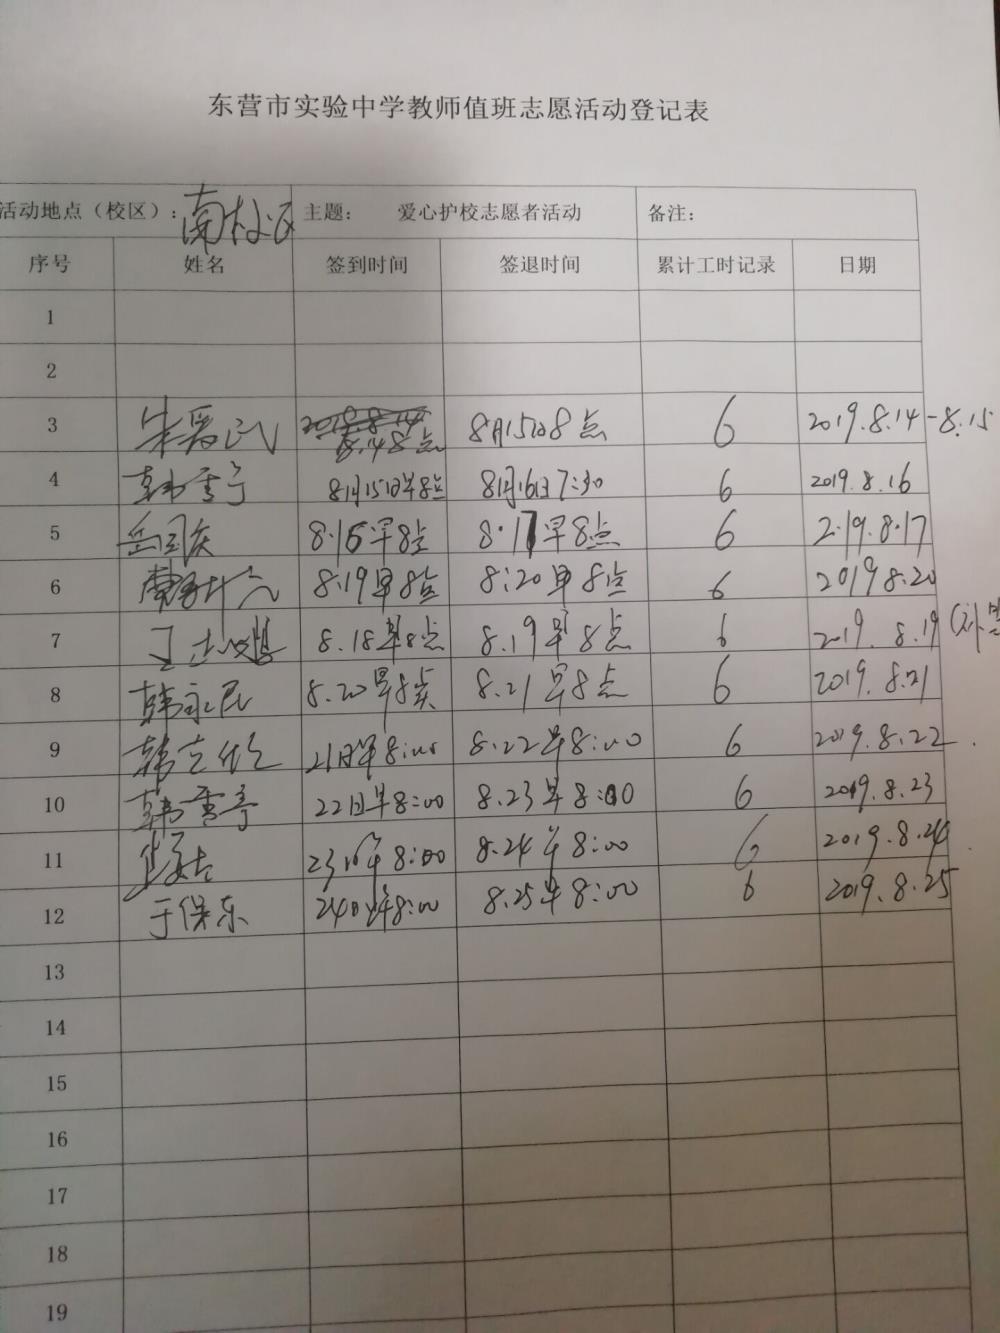 东营市实验中学教师值班志愿活动登记表
活动地点（校区）：南校区 主题： 爱心护校志愿者活动 备注：
序号 姓名 签到时间 签退时间 累计工时记录 日期
1
2
3 8.14 8点 8月15日8点 6 2019.8.14-8.15
4 韩雪亭 8月15日早8点 8月16日7:30 6 2019.8.16
5 岳国庆 8.16早8点 8.17早8点 6 2019.8.17
6 8.19早8点 8.20早8点 6 2019 8.20
7 8.18早8点 8.19早8点 6 2019.8.19
8 韩永民 8.20早8点 8.21早8点 6 2019.8.21
9 21日早8:00 8.22早8:00 6 2019.8.22
10 韩雪亭 22日早8:00 8.23早8:00 6 2019.8.23
11 23日年8:00 8.24年8:00 6 2019.8.24
12 于保东 24日年8:00 8.25年8:00 6 2019.8.25
13
14
15
16
17
18
19